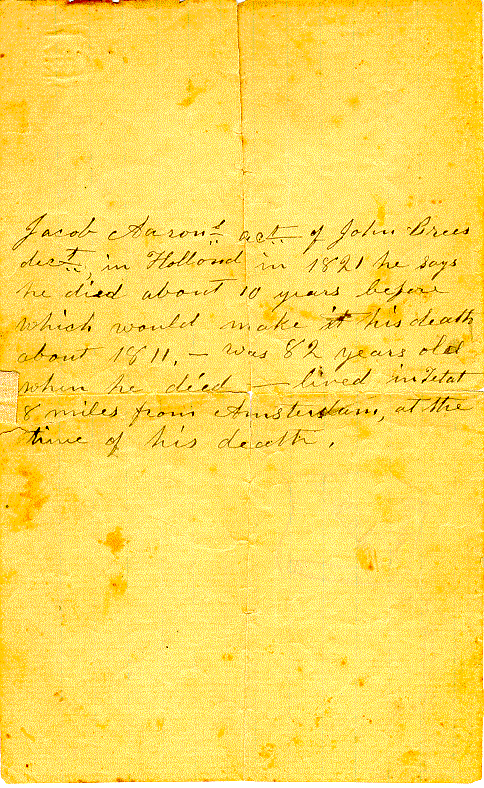 Jacob Aarons act. of John Brees
dect., in Holland in 1821 he says
he died about 10 years before
which would make it his death
about 1811, – was 82 years old
when he died – lived in Tetat
8 miles from Amsterdam, at the
time of his death.